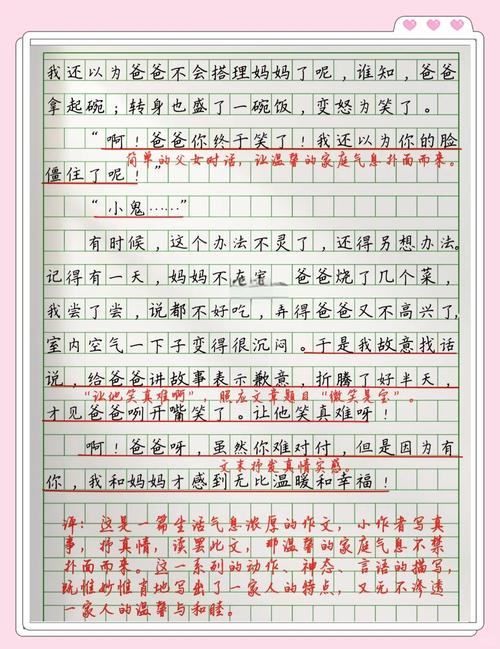 我还以为爸爸不会搭理妈妈了呢，谁知，爸爸
拿起碗；转身也盛了一碗饭，变怒为笑了。
“啊！爸爸你终于笑了！我还以为你的脸
简单的父女对话，让温馨的家庭气息扑面而来。
僵住了呢！”
“小鬼……”
有时候，这个办法不灵了，还得另想办法。
记得有一天，妈妈不在 爸爸烧了几个菜，
我尝了尝，说都不好吃，弄得爸爸又不高兴了，
室内空气一下子变得很沉闷。于是我故意找话
说，给爸爸讲故事表示歉意，折腾了好半天，
“让他笑真难呀”，照应文章题目“微笑是宝”。
才见爸爸咧开嘴笑了。让他笑真难呀！
啊！爸爸呀，虽然你难对付，但是因为有
文末抒发真情实感。
你，我和妈妈才感到无比温暖和幸福！
评：这是一篇生活气息浓厚的作文，小作者写真
事，抒真情，读罢此文，那温馨的家庭气息不禁
扑面而来。这一系列的动作、神态、言语的描写，
既惟妙惟肖地写出了一家人的特点，又无不渗透
一家人的温馨与和睦。